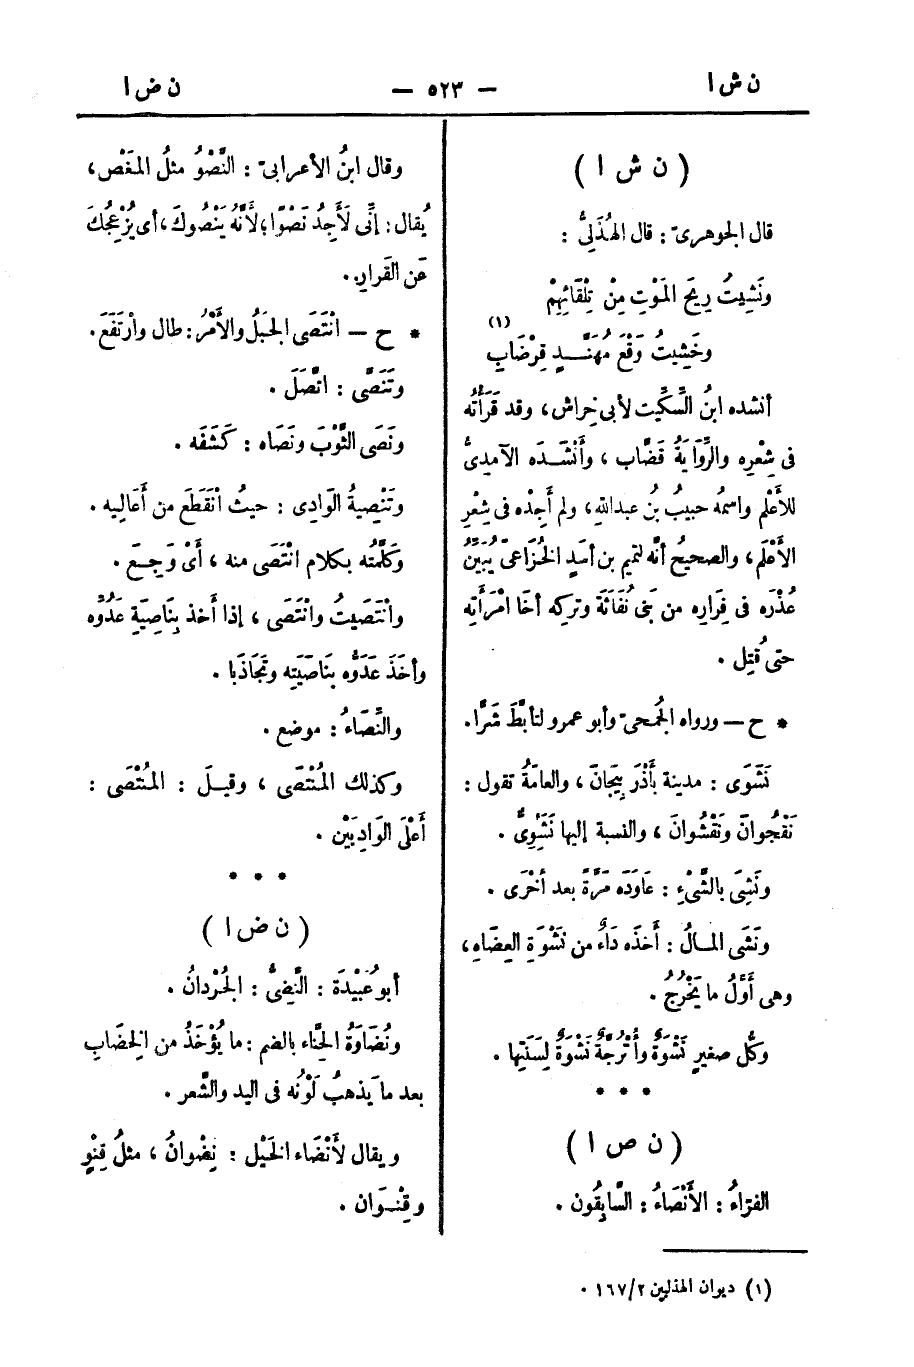 ن ش ا
— ٥٢٣ —
ن ض ا
( ن ش ا )
قال الجوهرىّ : قال الهُذَلِىُّ :
ونَشِيتُ رِيحَ المَوْتِ مِنْ تِلْقَائِهِمْ
وخَشِيتُ وَقْعَ مُهَنَّـــدٍ قِرْضَابِ (١)
أنشده ابنُ السِّكِّيت لأبى خِراش، وقد قَرَأْتُه
فى شِعْرِه والرِّوَايَةُ قَضَّاب ، وأَنْشَـدَه الآمدِىُّ
للأَعْلَم واسمُه حبيبُ بنُ عبدالله، ولم أَجِدْه فى شِعْرِ
الأَعْلَم، والصحيحُ أنَّه لتميم بن أَسَدٍ الخُزَاعىّ يُبَيِّنُ
عُذْرَه فى فِرَارِه من بَنِى نُفَاثَةَ وتركِه أخَا امْرَأَتِه
حتى قُتِل .
* ح — ورواه الجُمَحِىّ وأبو عمرو لتأَبَّطَ شَرًّا.
نَشَوَى : مدينة بأَذْرَبِيجَانَ ، والعامّةُ تقول :
نَقْجُوانَ ونَقْشُوانَ ، والنسبة إليها نَشَوِىٌّ .
ونَشِىَ بالشَّىْءِ : عَاوَدَه مَرَّةً بعد أُخْرَى .
ونَشَى المـالُ : أَخذَه دَاءٌ من نَشْوَةِ العِضَاه،
وهى أَوَّلُ ما يَخْرُجُ .
وكُلُّ صغيرٍ نَشْوَةٌ وأُتْرُجَّةٌ نَشْوَةٌ لِسَنَتِها .
* * *
( ن ص ا )
الفرّاءُ : الأَنْصَاءُ : السَّابِقُون .
وقال ابنُ الأعرابىّ : النَّصْوُ مثلُ المَغَص،
يُقال : إنِّى لَأَجِدُ نَصْوًا؛ لأنَّهُ يَنْصُوكَ، أى يُزْعِجُكَ
عَن القَرار.
* ح — انْتَصَى الجَبَلُ والأَمْرُ: طال وارْتَفَعَ.
وتَنَصَّى : اتَّصَلَ .
ونَصَى الثَّوْبَ ونَصَاه : كَشَفَه .
وتَنْصِيةُ الوَادِى : حيثُ انْقَطَعَ من أَعَالِيه .
وكَلَّمْتُه بكلام انْتَصَى منه ، أَىْ وَجِـعَ .
وانْتَصَيتُ وانْتَصَى ، إذا أخذ بِنَاصِيَةِ عَدُوِّه
وأخَذَ عَدُوُّه بنَاصِيَتِه وتَجَاذَبا .
والنَّصَاءُ : موضع .
وكذلك المُنْتَصَى ، وقيـلَ : المُنْتَصَى :
أَعْلَى الوَادِيَيْن .
* * *
( ن ض ا )
أبو عُبَيْدَة : النَّضِىُّ : الجُرْدانُ .
ونُضَاوَةُ الحِنَّاء بالضم : ما يُؤْخَذُ من الخِضَابِ
بعد ما يَذهبُ لَوْنُه فى اليد والشَّعر .
ويقال لأَنْضَاء الخَيْل : نِضْوانُ ، مثلُ قِنْوٍ
وقِنْـوَان .
(١) ديوان الهذليين ٢/ ١٦٧ .